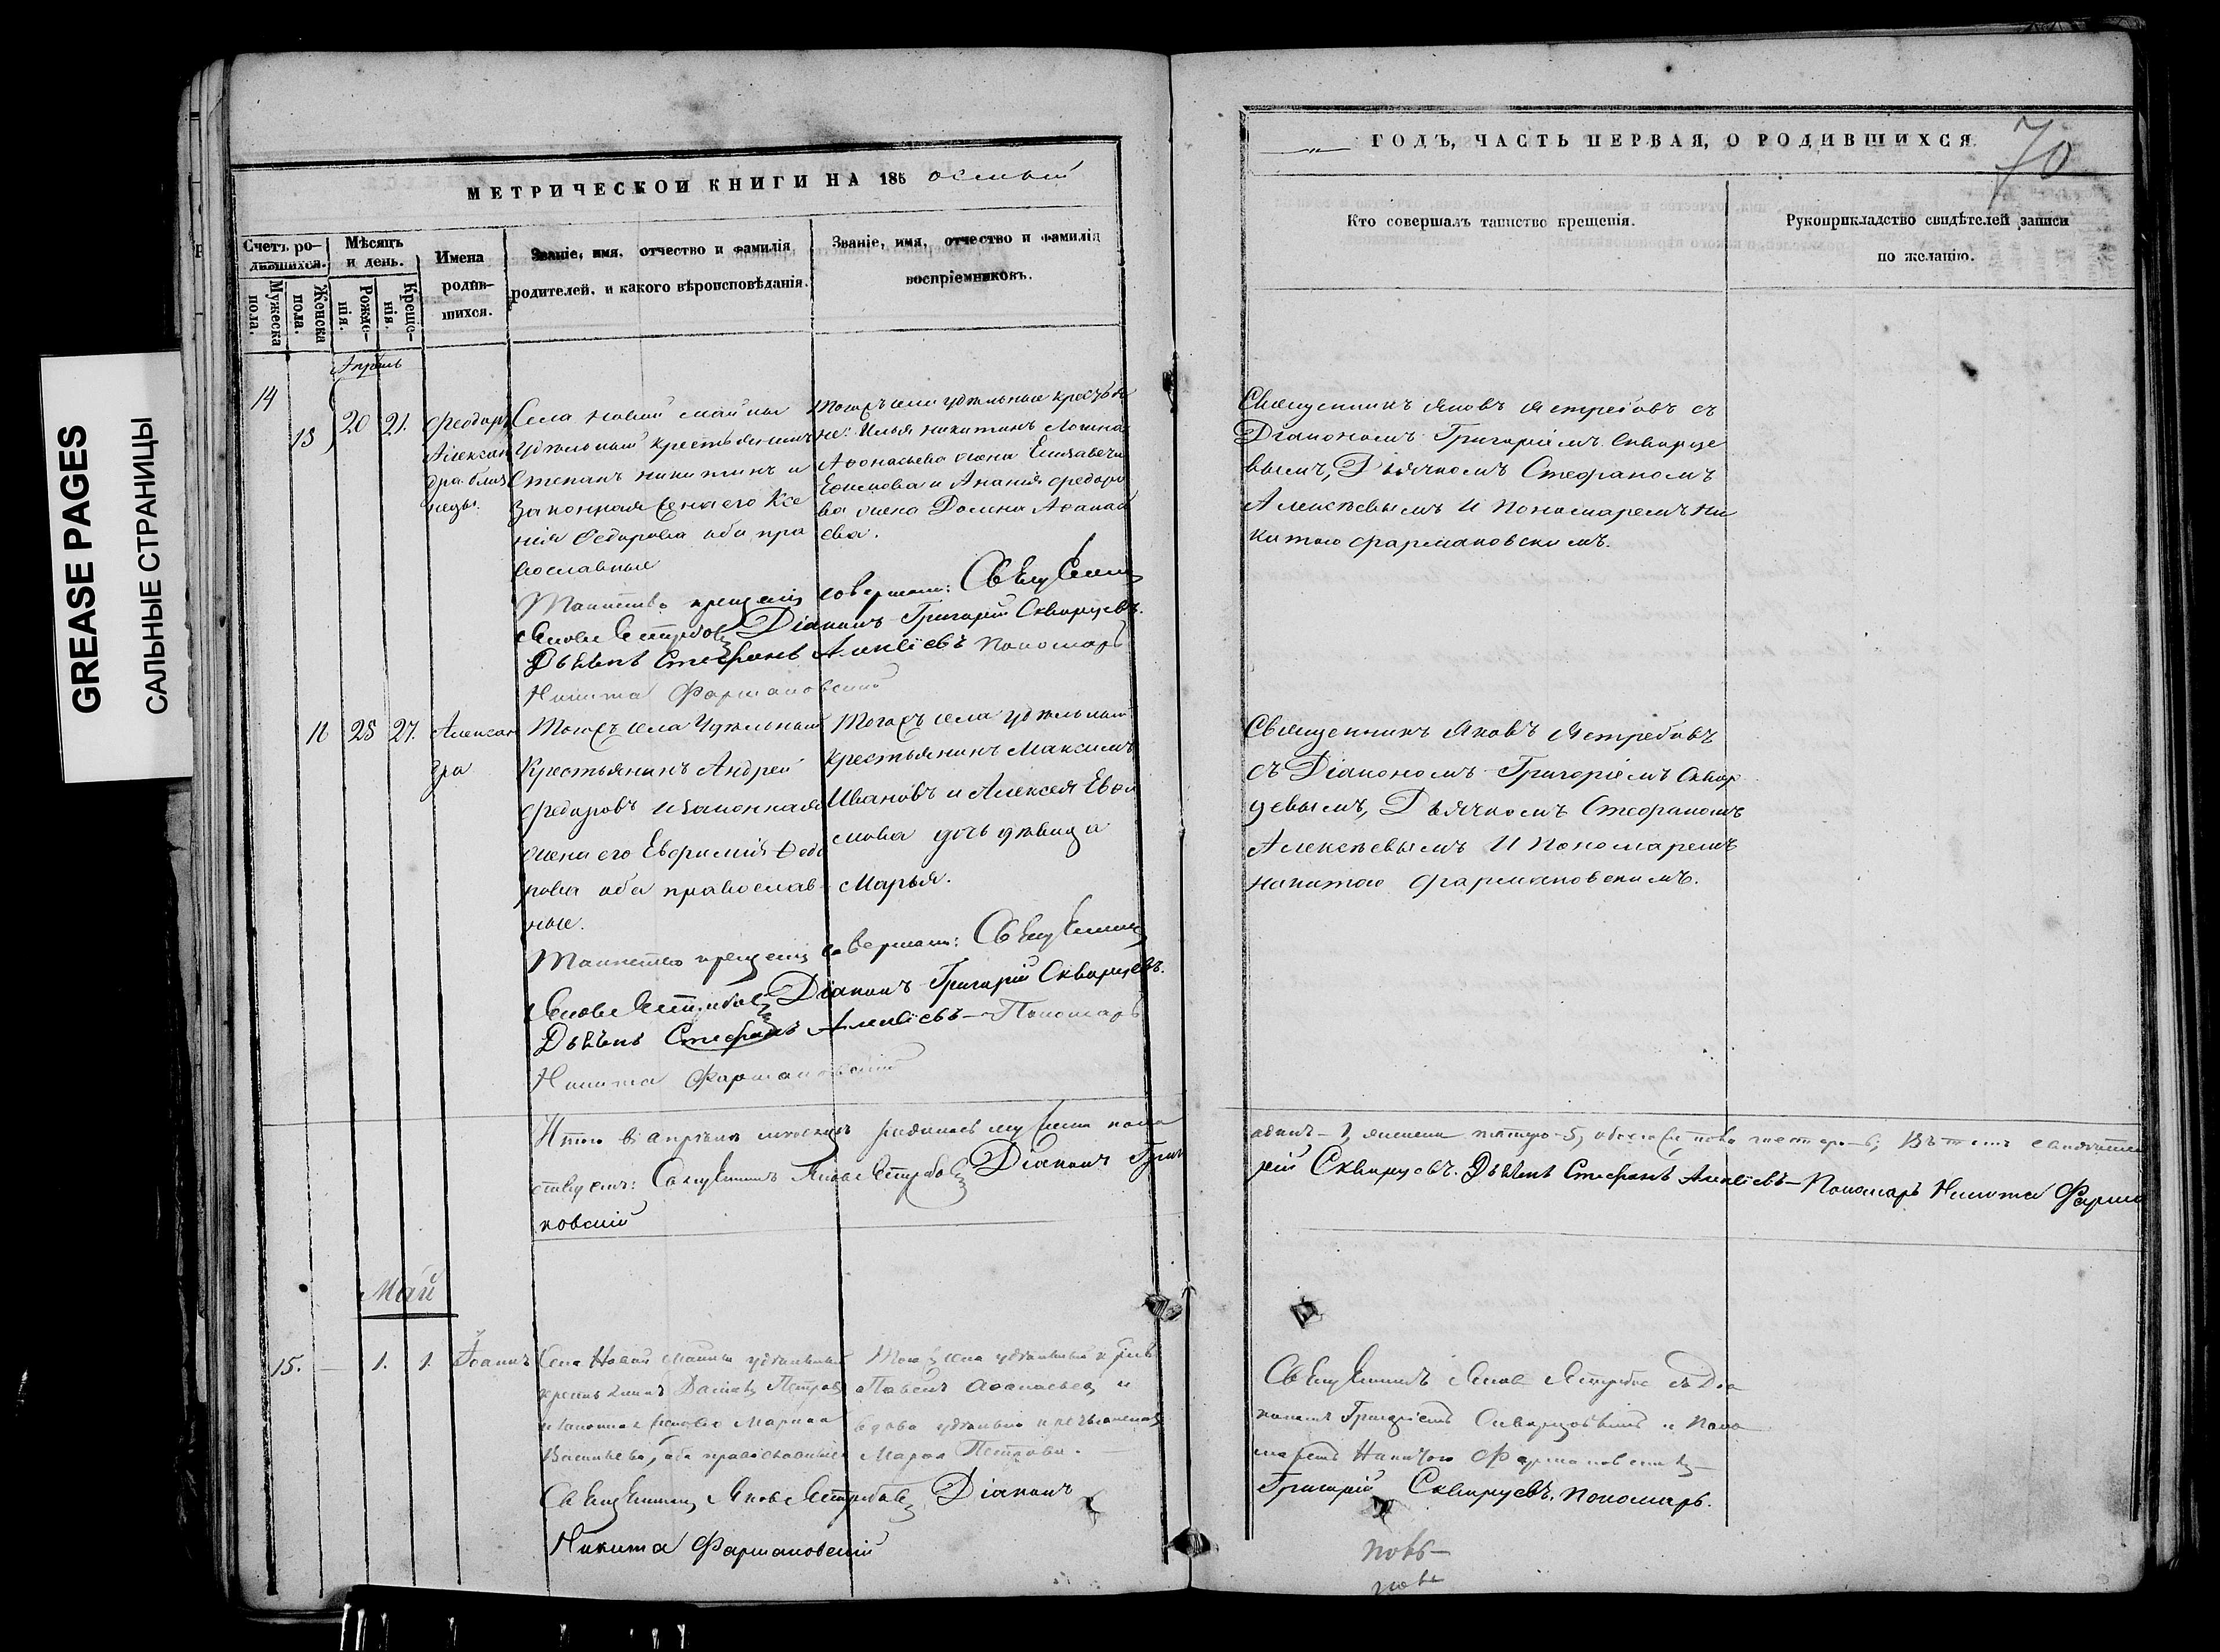 GREASE PAGES
САЛЬНЫЕ СТРАНИЦЫ
МЕТРИЧЕСКОЙ КНИГИ НА 185 осмый
Счетъ ро-
дившихся.
Мужеска пола.
Женска пола.
Мѣсяцъ
и день.
Рожде-
нія.
Креще-
нія.
Имена
родив-
шихся.
Званіе, имя, отчество и фамилія
родителей, и какого вѣроисповѣданія.
Званіе, имя, отчество и фамилія
воспріемниковъ.
Апрѣль
14
15
20 21.
Феодоръ
Алексан
дра близ
нецы.
Села Новой Майны
удѣльный крестьянинъ
Степанъ Никитинъ и
законная жена его Ксе
нія Федорова оба пра
вославные
Тогожъ села удѣльные крестья
не: Илья Никитинъ
Афонасьева жена Елизавета
и Ананія Федоро
ва жена Домна Афанась
ева.
Таинство крещенія совершали: Священникъ
Яковъ Ястребовъ Діаконъ Григорій Скворцевъ.
Дьячекъ Стефанъ Алексіевъ Пономарь
Никита Фармаковскій
16 25 27.
Алексан
дра
Тогожъ села Удѣльный
Крестьянинъ Андрей
Федоровъ и законная
жена его Евфимія Федо
рова оба православ
ные.
Тогожъ села удѣльный
крестьянинъ Максимъ
Ивановъ и Алексея Евдо
кимова дочь дѣвица
Марья.
Таинство крещенія совершали: Священникъ
Яковъ Ястребовъ Діаконъ Григорій Скворцевъ.
Дьячекъ Стефанъ Алексіевъ — Пономарь
Никита Фармаковскій
Итого въ апрѣлѣ мѣсяцѣ родилось мужеска пола
ствуемъ: Священникъ Яковъ Ястребовъ Діаконъ Григо
ковскій
Май
15. — 1. 1.
Іоаннъ
Села Новой Майны удѣльный
крестьянинъ Петровъ
и законная жена его Марина
Васильева, оба православные
Тогожъ села удѣльный
Павелъ Афанасьевъ и
вдова удѣльная крестьянская
Марья Петрова. —
Священникъ Яковъ Ястребовъ Діаконъ
Никита Фармаковскій
— " — ГОДЪ, ЧАСТЬ ПЕРВАЯ, О РОДИВШИХСЯ.
70
Кто совершалъ таинство крещенія.
Рукоприкладство свидѣтелей записи
по желанію.
Священникъ Яковъ Ястребовъ съ
Діакономъ Григоріемъ Скворце
вымъ, Дьячкомъ Стефаномъ
Алексѣевымъ и Пономаремъ Ни
китою Фармаковскимъ.
Священникъ Яковъ Ястребовъ
съ Діакономъ Григоріемъ Сквор
цевымъ, Дьячкомъ Стефаномъ
Алексѣевымъ и Пономаремъ
Никитою Фармаковскимъ.
одинъ — 1, женска пятеро — 5, обоего пола шестеро — 6; Въ томъ свидѣтель
рій Скворцевъ. Дьячекъ Стефанъ Алексіевъ — Пономарь Никита Фарма
Священникъ Яковъ Ястребовъ съ Діа
кономъ Григоріемъ Скворцовымъ и Поно
маремъ Никитою Фармаковскимъ —
Григорій Скворцевъ. Пономарь.